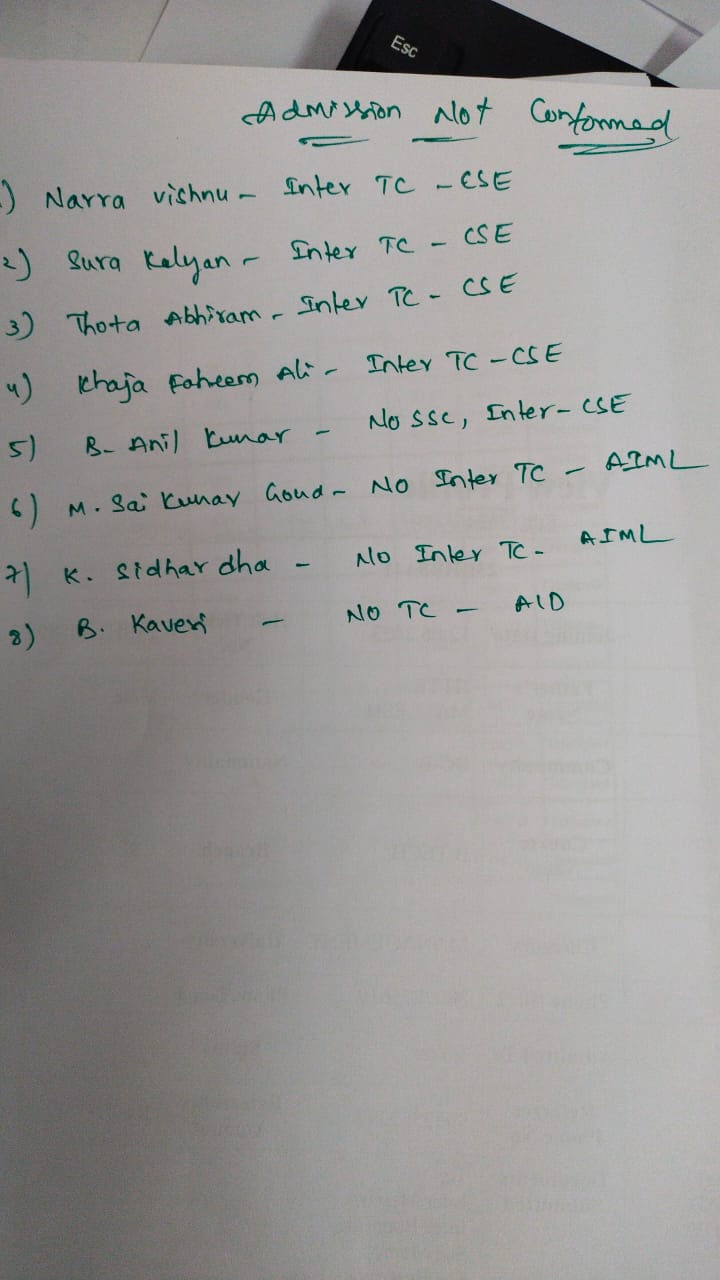 Esc
Admission Not Conformed
1) Narra vishnu - Inter TC - CSE
2) Sura Kalyan - Inter TC - CSE
3) Thota Abhiram - Inter TC - CSE
4) Khaja Faheem Ali - Inter TC - CSE
5) B- Anil Kumar - No SSC, Inter - CSE
6) M. Sai Kumar Goud - NO Inter TC - AIML
7) K. Sidhardha - No Inter TC - AIML
8) B. Kaveri - NO TC - AID